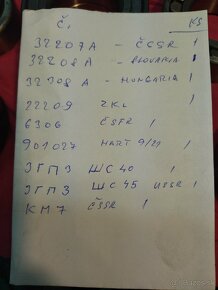 Č. KS
32207A - ČSSR 1
32208A - SLOVAKIA 1
32308A - HUNGARIA 1
22209 ZKL 1
6306 ČSFR 1
901027 MART 9/21 1
ЗГПЗ ШС 40 1
ЗГПЗ ШС 45 USSR 1
KM7 ČSSR 1